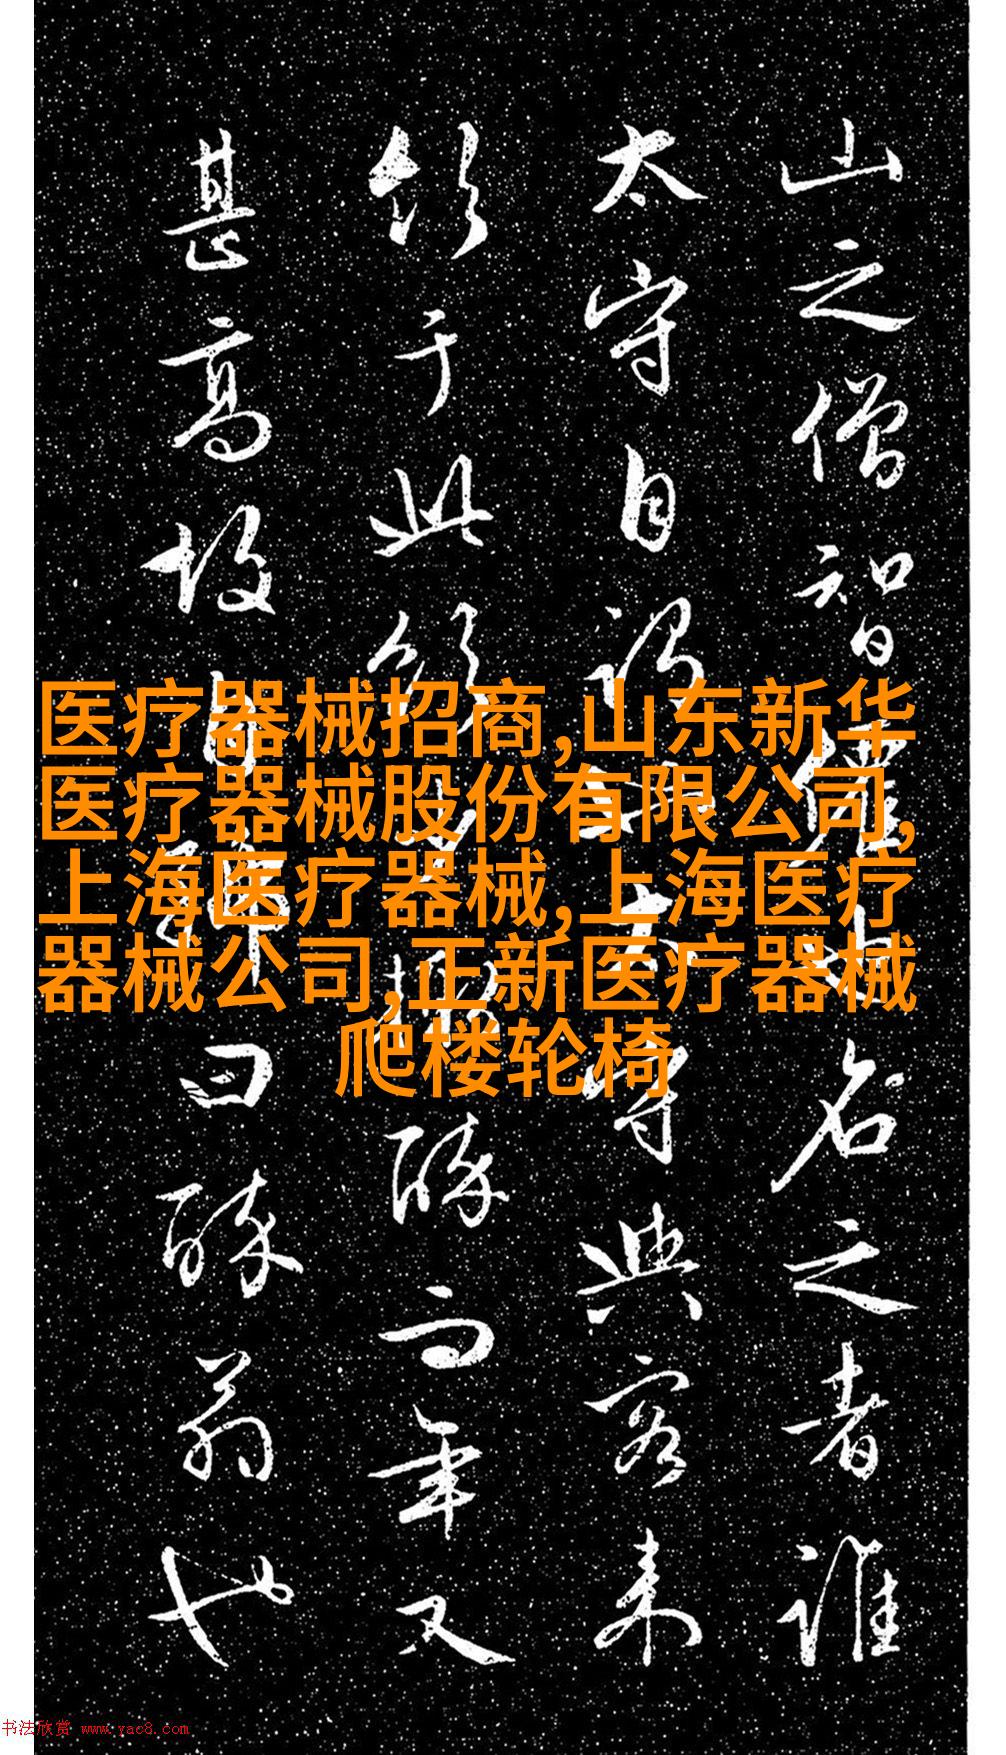 山之僧智僊也名之者誰
太守自謂也太守與客来
飲于此飲少輒醉而年又
甚高故自號曰醉翁也
医疗器械招商,山东新华
医疗器械股份有限公司,
上海医疗器械,上海医疗
器械公司,正新医疗器械
爬楼轮椅
书法欣赏 www.yac8.com